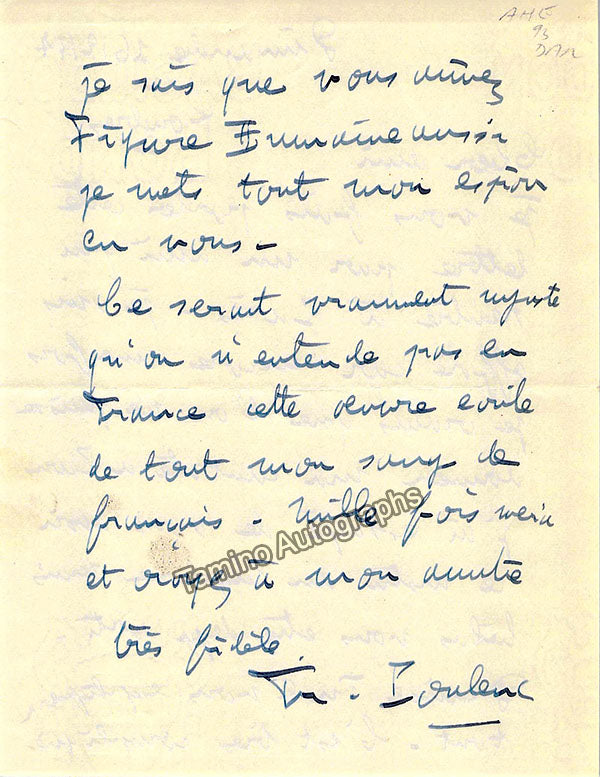 AHE
95
je sais que vous aimez
Figure Humaine aussi
je mets tout mon espoir
en vous -
Ce serait vraiment injuste
qu'on n'entende pas en
France cette oeuvre écrite
de tout mon sang de
français - Mille fois merci
Tamino Autographs
et croyez à mon amitié
très fidèle.
Fr. Poulenc